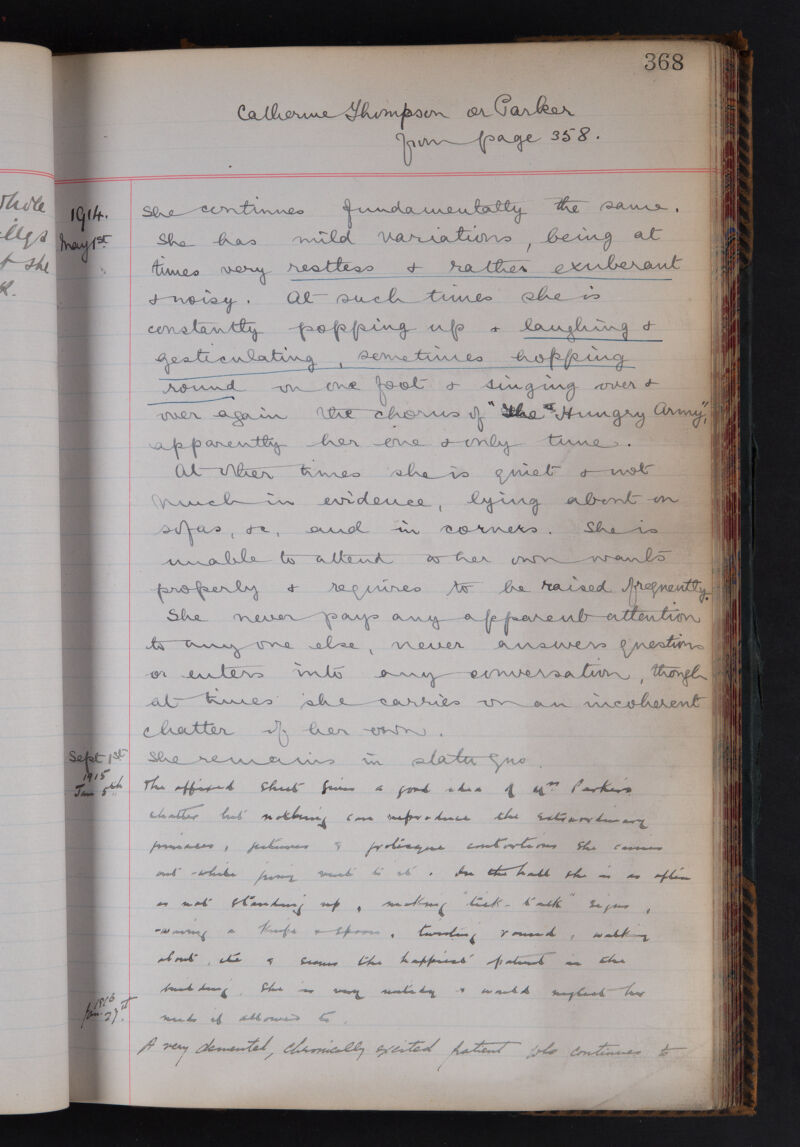 368
Catherine Thompson or Parker
from page 358.
whole
1914.
May 1st
She continues fundamentally the same.
She has mild variations, being at
times very restless & rather exuberant
& noisy. At such times she is
constantly popping up & laughing &
gesticulating, sometimes hopping
round on one foot & singing over &
over again the chorus of "The Hungry Army",
apparently her one & only tune.
At other times she is quiet & not
much in evidence, lying about on
sofas, &c, and in corners. She is
unable to attend to her own wants
properly & requires to be raised frequently.
She never pays any apparent attention
to anyone else, never answers questions
or enters into any conversation, though
at times she carries on an incoherent
chatter of her own.
Sept 1st
She remains in statu quo.
1915
Jan 5th
The affixed sheet gives a good idea of Mrs Parker's
chatter but nothing can reproduce the extraordinary
grimaces, gestures & grotesque contortions she carries
out while giving vent to it. In the hall she is as often
as not standing up, making "tick-tack" signs,
waving a knife & spoon, twisting round, walking
about, etc & seems the happiest patient in the
building. She is very untidy & would neglect her
meals if allowed to.
1916
Jan. 27th.
A very demented, chronically excited patient who continues to